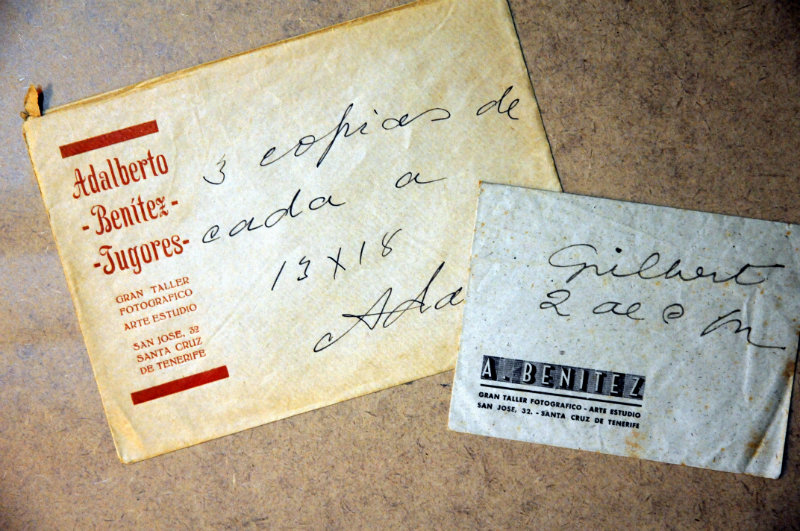 Adalberto
-Benítez-
-Tugores-
GRAN TALLER
FOTOGRAFICO
ARTE ESTUDIO
SAN JOSE, 32
SANTA CRUZ
DE TENERIFE
3 copias de
cada a
13 X 18
Gilbert
2 de
A. BENITEZ
GRAN TALLER FOTOGRAFICO - ARTE ESTUDIO
SAN JOSE, 32. - SANTA CRUZ DE TENERIFE